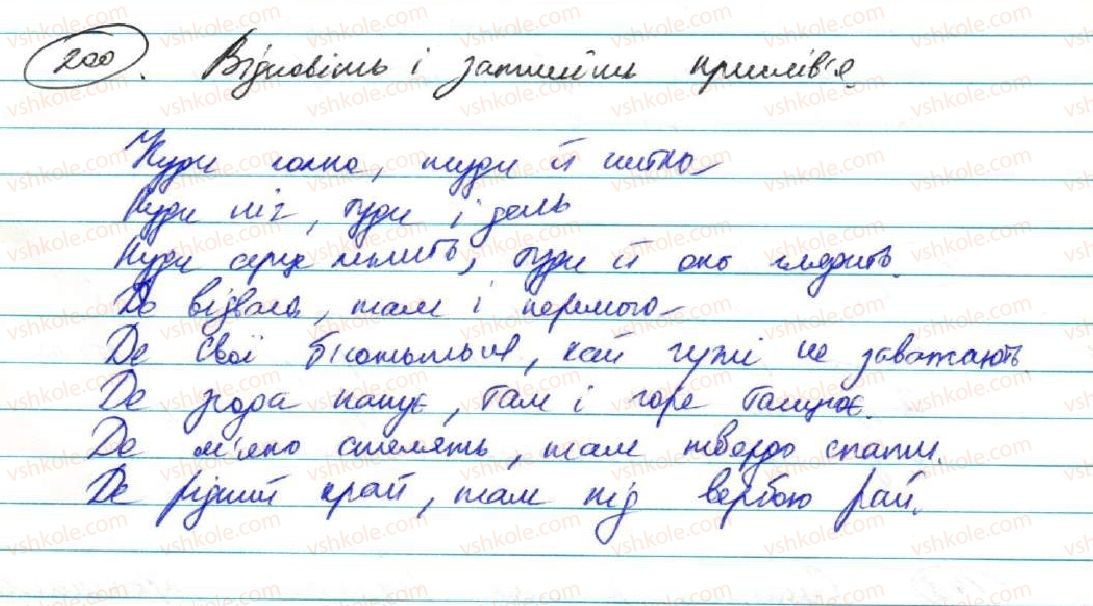 200. Відновіть і запишіть прислів'я.
Куди голка, туди й нитка.
Куди ніг, туди і
Куди серце лежить, туди й око глядить.
Де відвага, там і перемога.
Де свої б'ються, хай чужі не заважають.
Де згода панує, там і горе танцює.
Де м'яко стелять, там твердо спати.
Де рідний край, там під вербою рай.